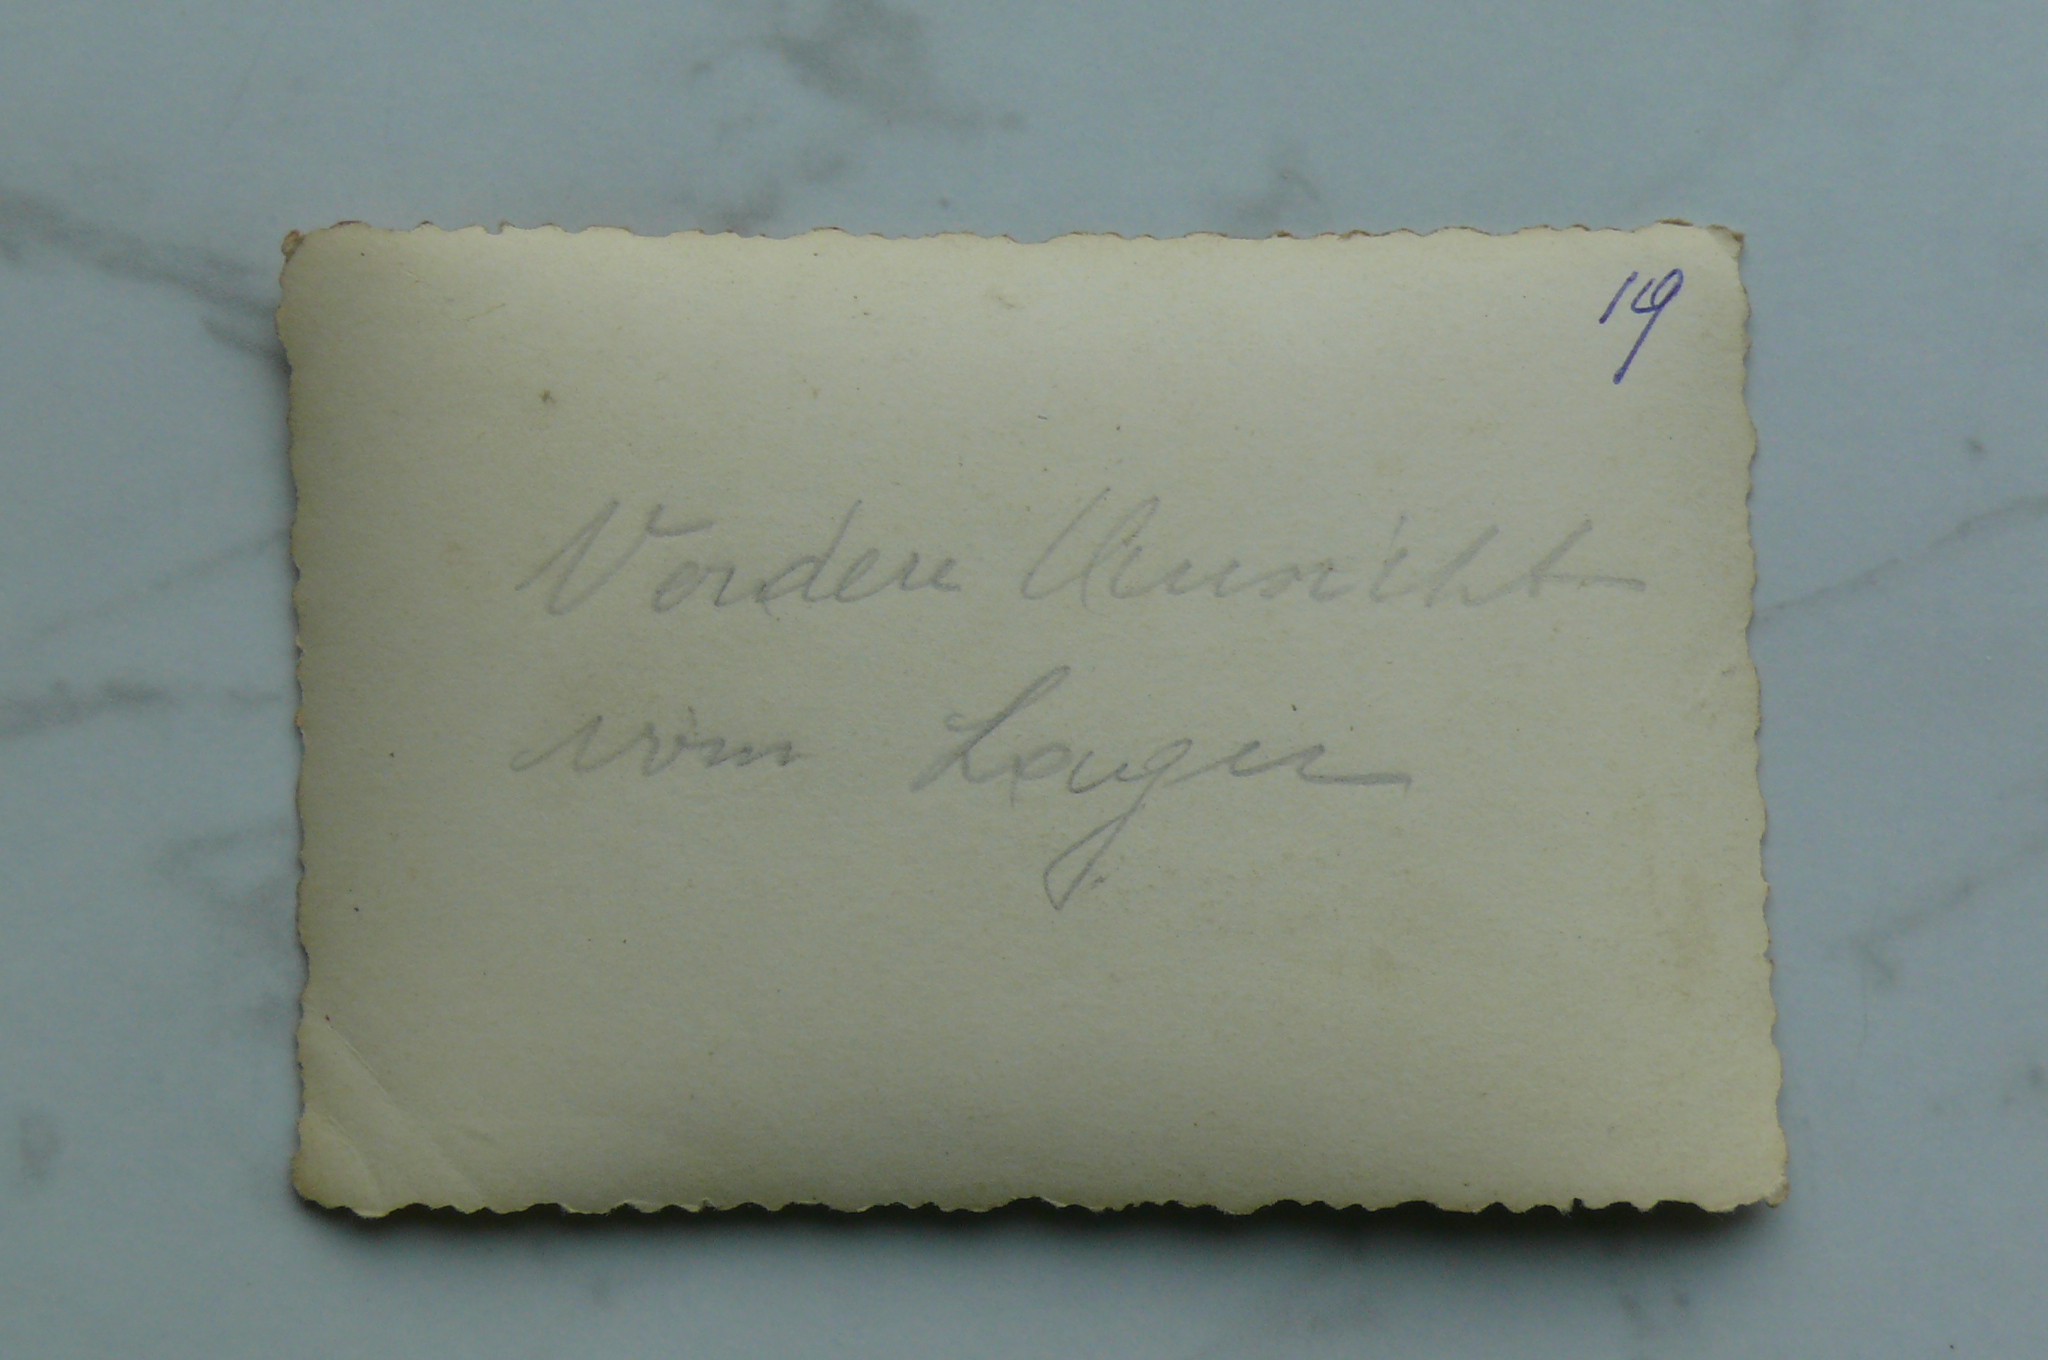 19
Vordere Ansicht
vom Lager